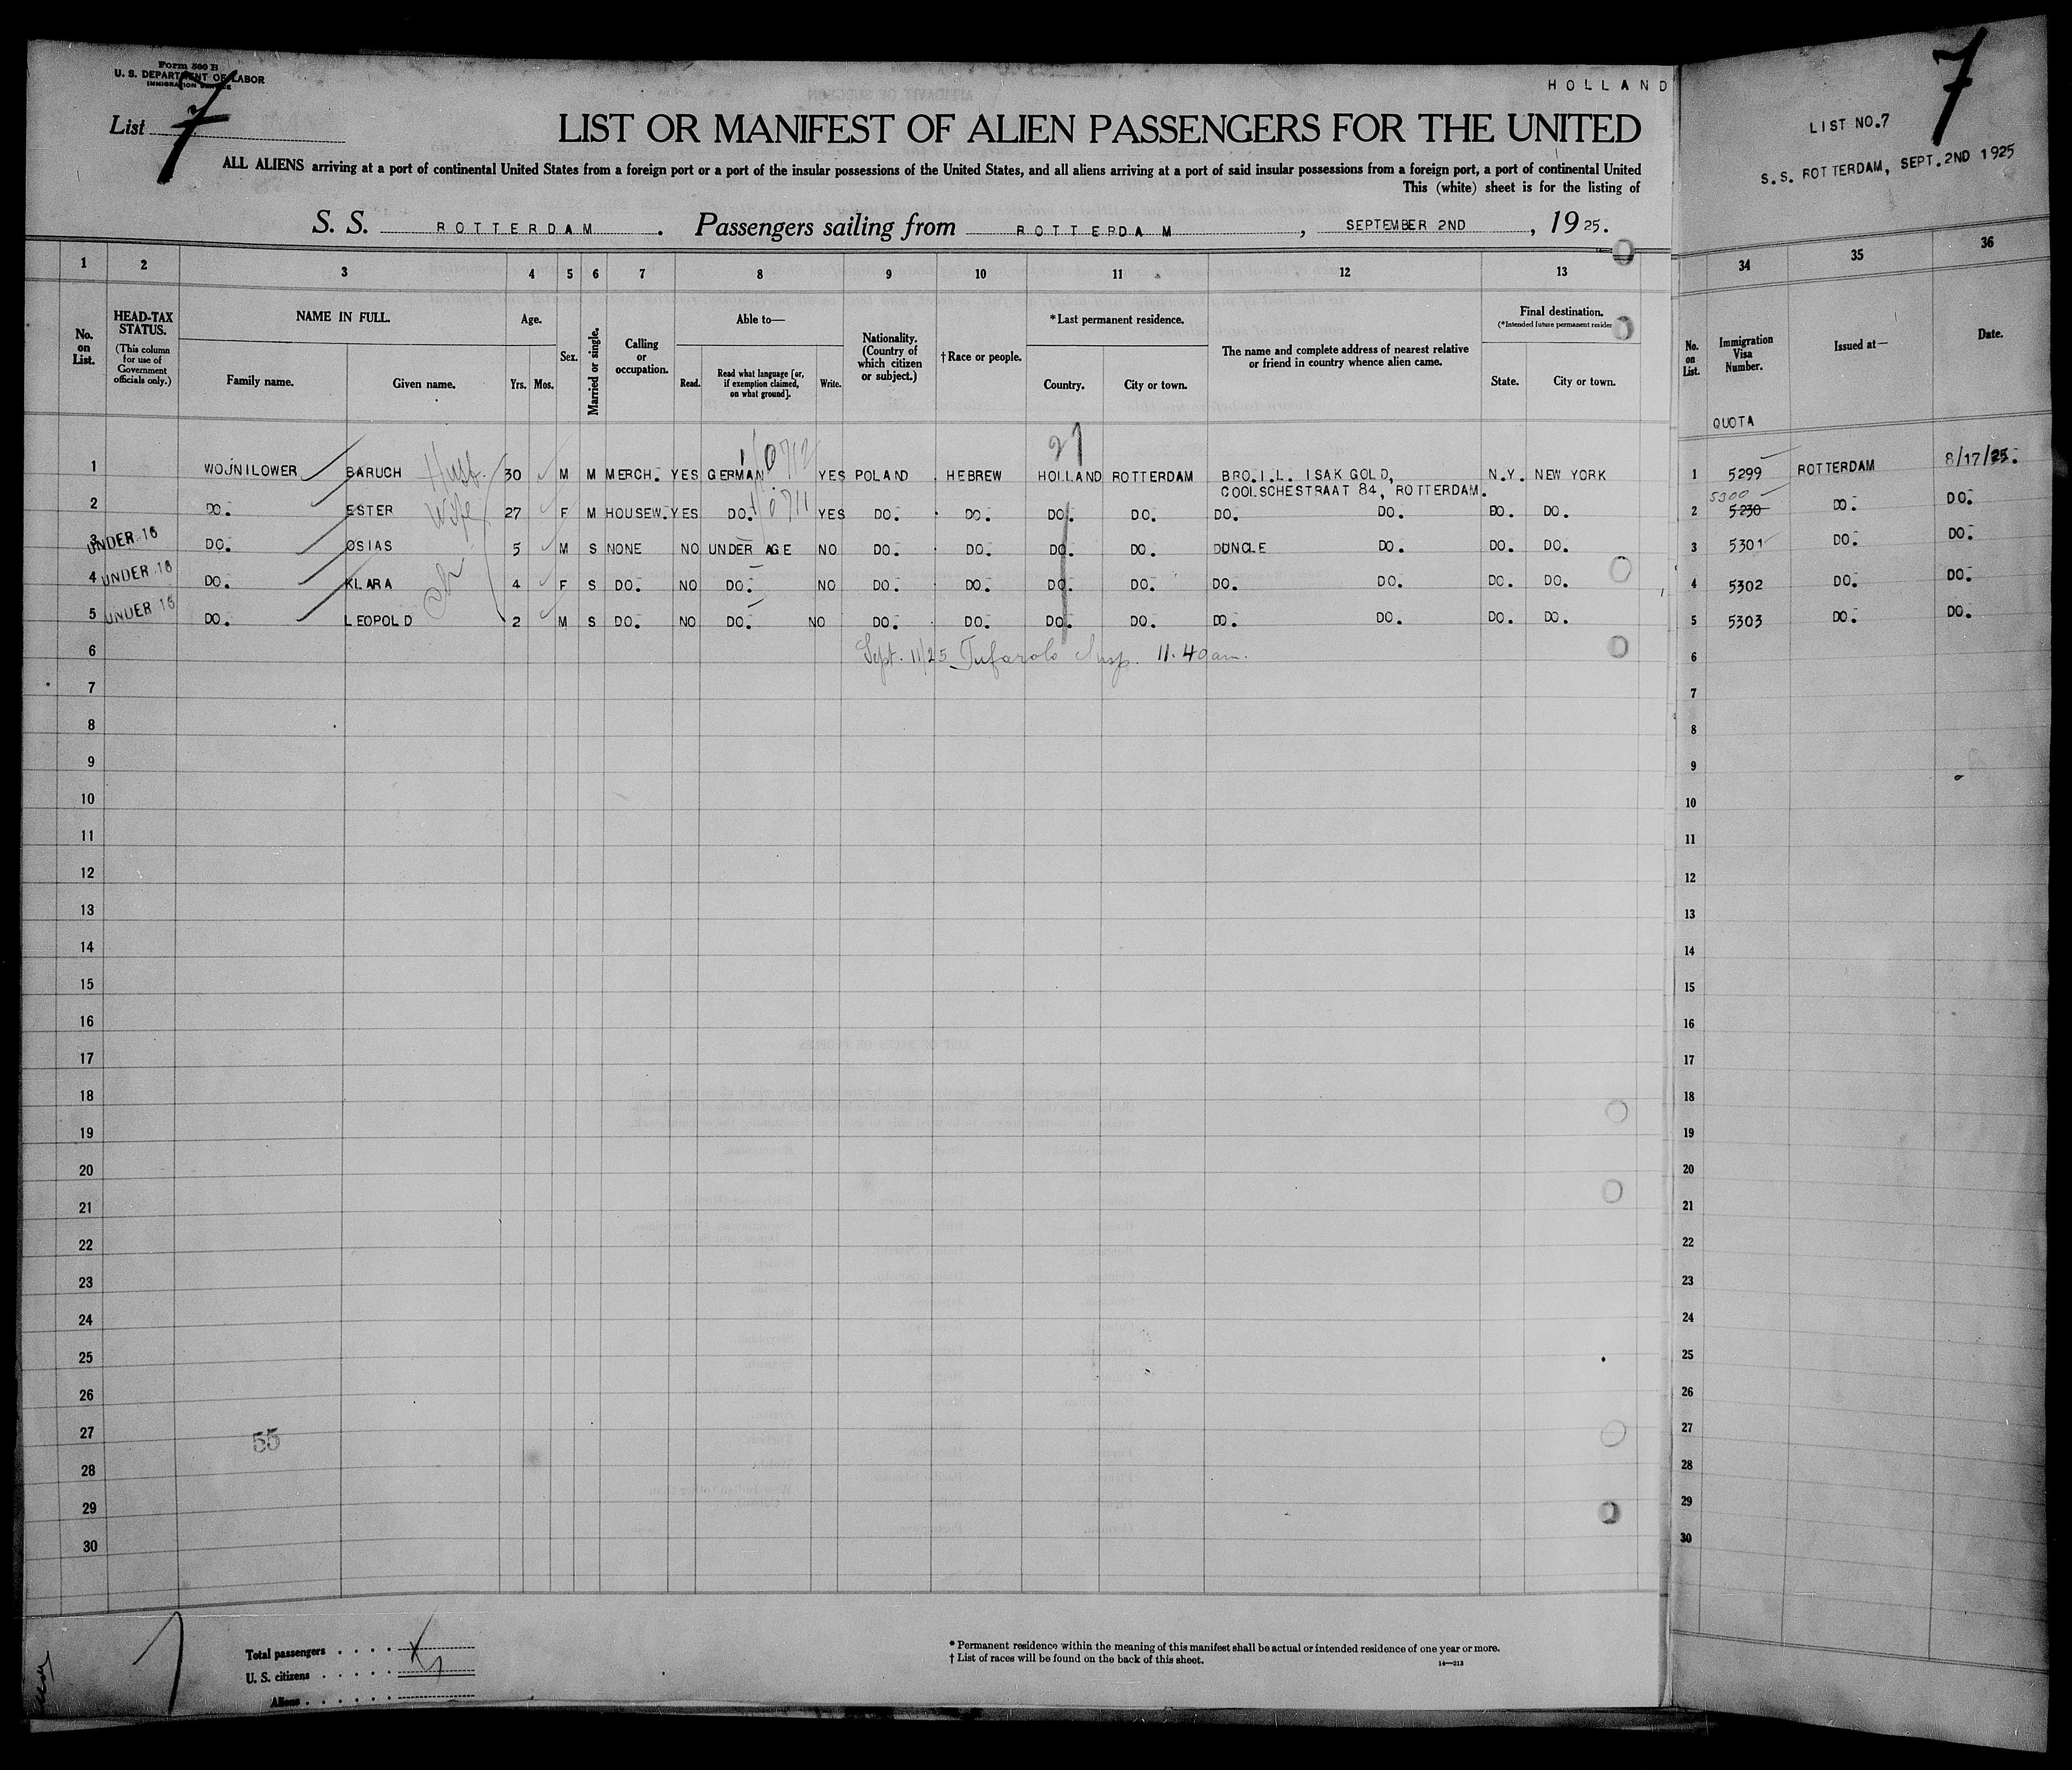 Form 500 B
U. S. DEPARTMENT OF LABOR
IMMIGRATION SERVICE
HOLLAND
List 7
LIST OR MANIFEST OF ALIEN PASSENGERS FOR THE UNITED
ALL ALIENS arriving at a port of continental United States from a foreign port or a port of the insular possessions of the United States, and all aliens arriving at a port of said insular possessions from a foreign port, a port of continental United
This (white) sheet is for the listing of
S. S. ROTTERDAM. Passengers sailing from ROTTERDAM, SEPTEMBER 2ND, 1925.
7
LIST NO.7
S.S. ROTTERDAM, SEPT.2ND 1925
1 2 3 4 5 6 7 8 9 10 11 12 13 34 35 36
No. on List.
HEAD-TAX STATUS.
(This column for use of Government officials only.)
NAME IN FULL.
Family name. Given name.
Age.
Yrs. Mos.
Sex.
Married or single.
Calling or occupation.
Able to—
Read. Read what language [or, if exemption claimed, on what ground]. Write.
Nationality. (Country of which citizen or subject.)
†Race or people.
*Last permanent residence.
Country. City or town.
The name and complete address of nearest relative or friend in country whence alien came.
Final destination.
(*Intended future permanent residen
State. City or town.
No. on List.
Immigration Visa Number.
Issued at—
Date.
QUOTA
27
1 WOJNILOWER BARUCH Husb. 30 M M MERCH. YES GERMAN YES POLAND HEBREW HOLLAND ROTTERDAM BRO.I.L. ISAK GOLD, N.Y. NEW YORK 1 5299 ROTTERDAM 8/17/25.
COOLSCHESTRAAT 84, ROTTERDAM.
5300
2 DO. ESTER Wife 27 F M HOUSEW. YES DO. YES DO. DO. DO. DO. DO. DO. DO. DO. 2 5230 DO. DO.
3 UNDER 16 DO. OSIAS 5 M S NONE NO UNDER AGE NO DO. DO. DO. DO. DUNCLE DO. DO. DO. 3 5301 DO. DO.
4 UNDER 16 DO. KLARA 4 F S DO. NO DO. NO DO. DO. DO. DO. DO. DO. DO. DO. 4 5302 DO. DO.
5 UNDER 16 DO. LEOPOLD 2 M S DO. NO DO. NO DO. DO. DO. DO. DO. DO. DO. DO. 5 5303 DO. DO.
6 Sept. 11/25 Tufarolo Insp. 11.40am. 6
7 7
8 8
9 9
10 10
11 11
12 12
13 13
14 14
15 15
16 16
17 17
18 18
19 19
20 20
21 21
22 22
23 23
24 24
25 25
26 26
27 55 27
28 28
29 29
30 30
Total passengers
U. S. citizens
Aliens
* Permanent residence within the meaning of this manifest shall be actual or intended residence of one year or more.
† List of races will be found on the back of this sheet.
14—213